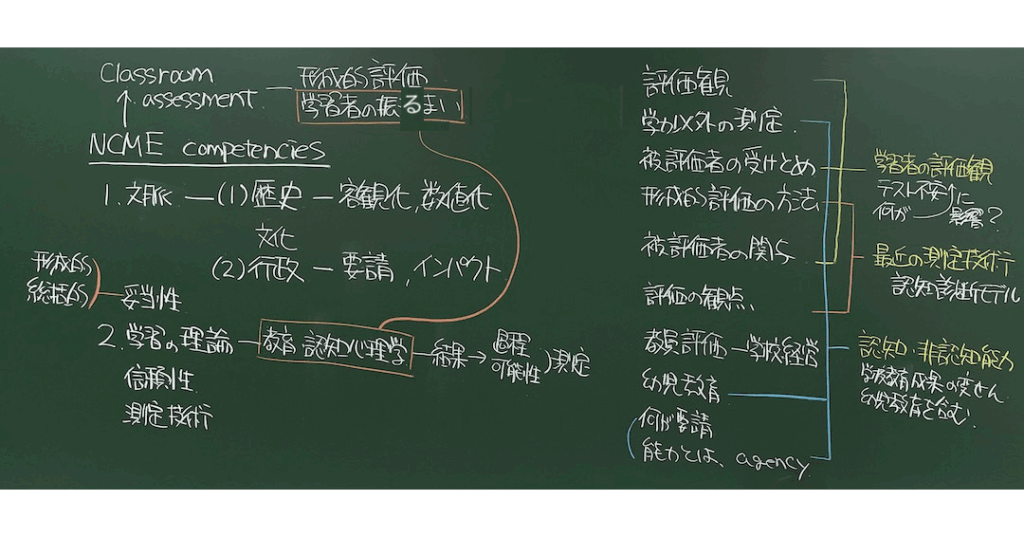 Classroom assessment — 形成的評価
学習者の振るまい
NCME competencies
1. 文脈 — (1) 歴史 — 客観化, 数値化
文化
(2) 行政 — 要請, インパクト
形成的
総括的
妥当性
2. 学習の理論 — 教育・認知心理学 — 結果 → 過程
可能性) 測定
信頼性
測定技術
評価観
学力以外の測定
被評価者の受けとめ
形成的評価の方法
被評価者の関与
評価の観点
教員評価 — 学校経営
幼児教育
何が要請
能力とは、agency
学習者の評価観
テスト不安に
何が 影響?
最近の測定技術
認知診断モデル
認知・非認知能力
学校教育成果の変せん
幼児教育を含む.